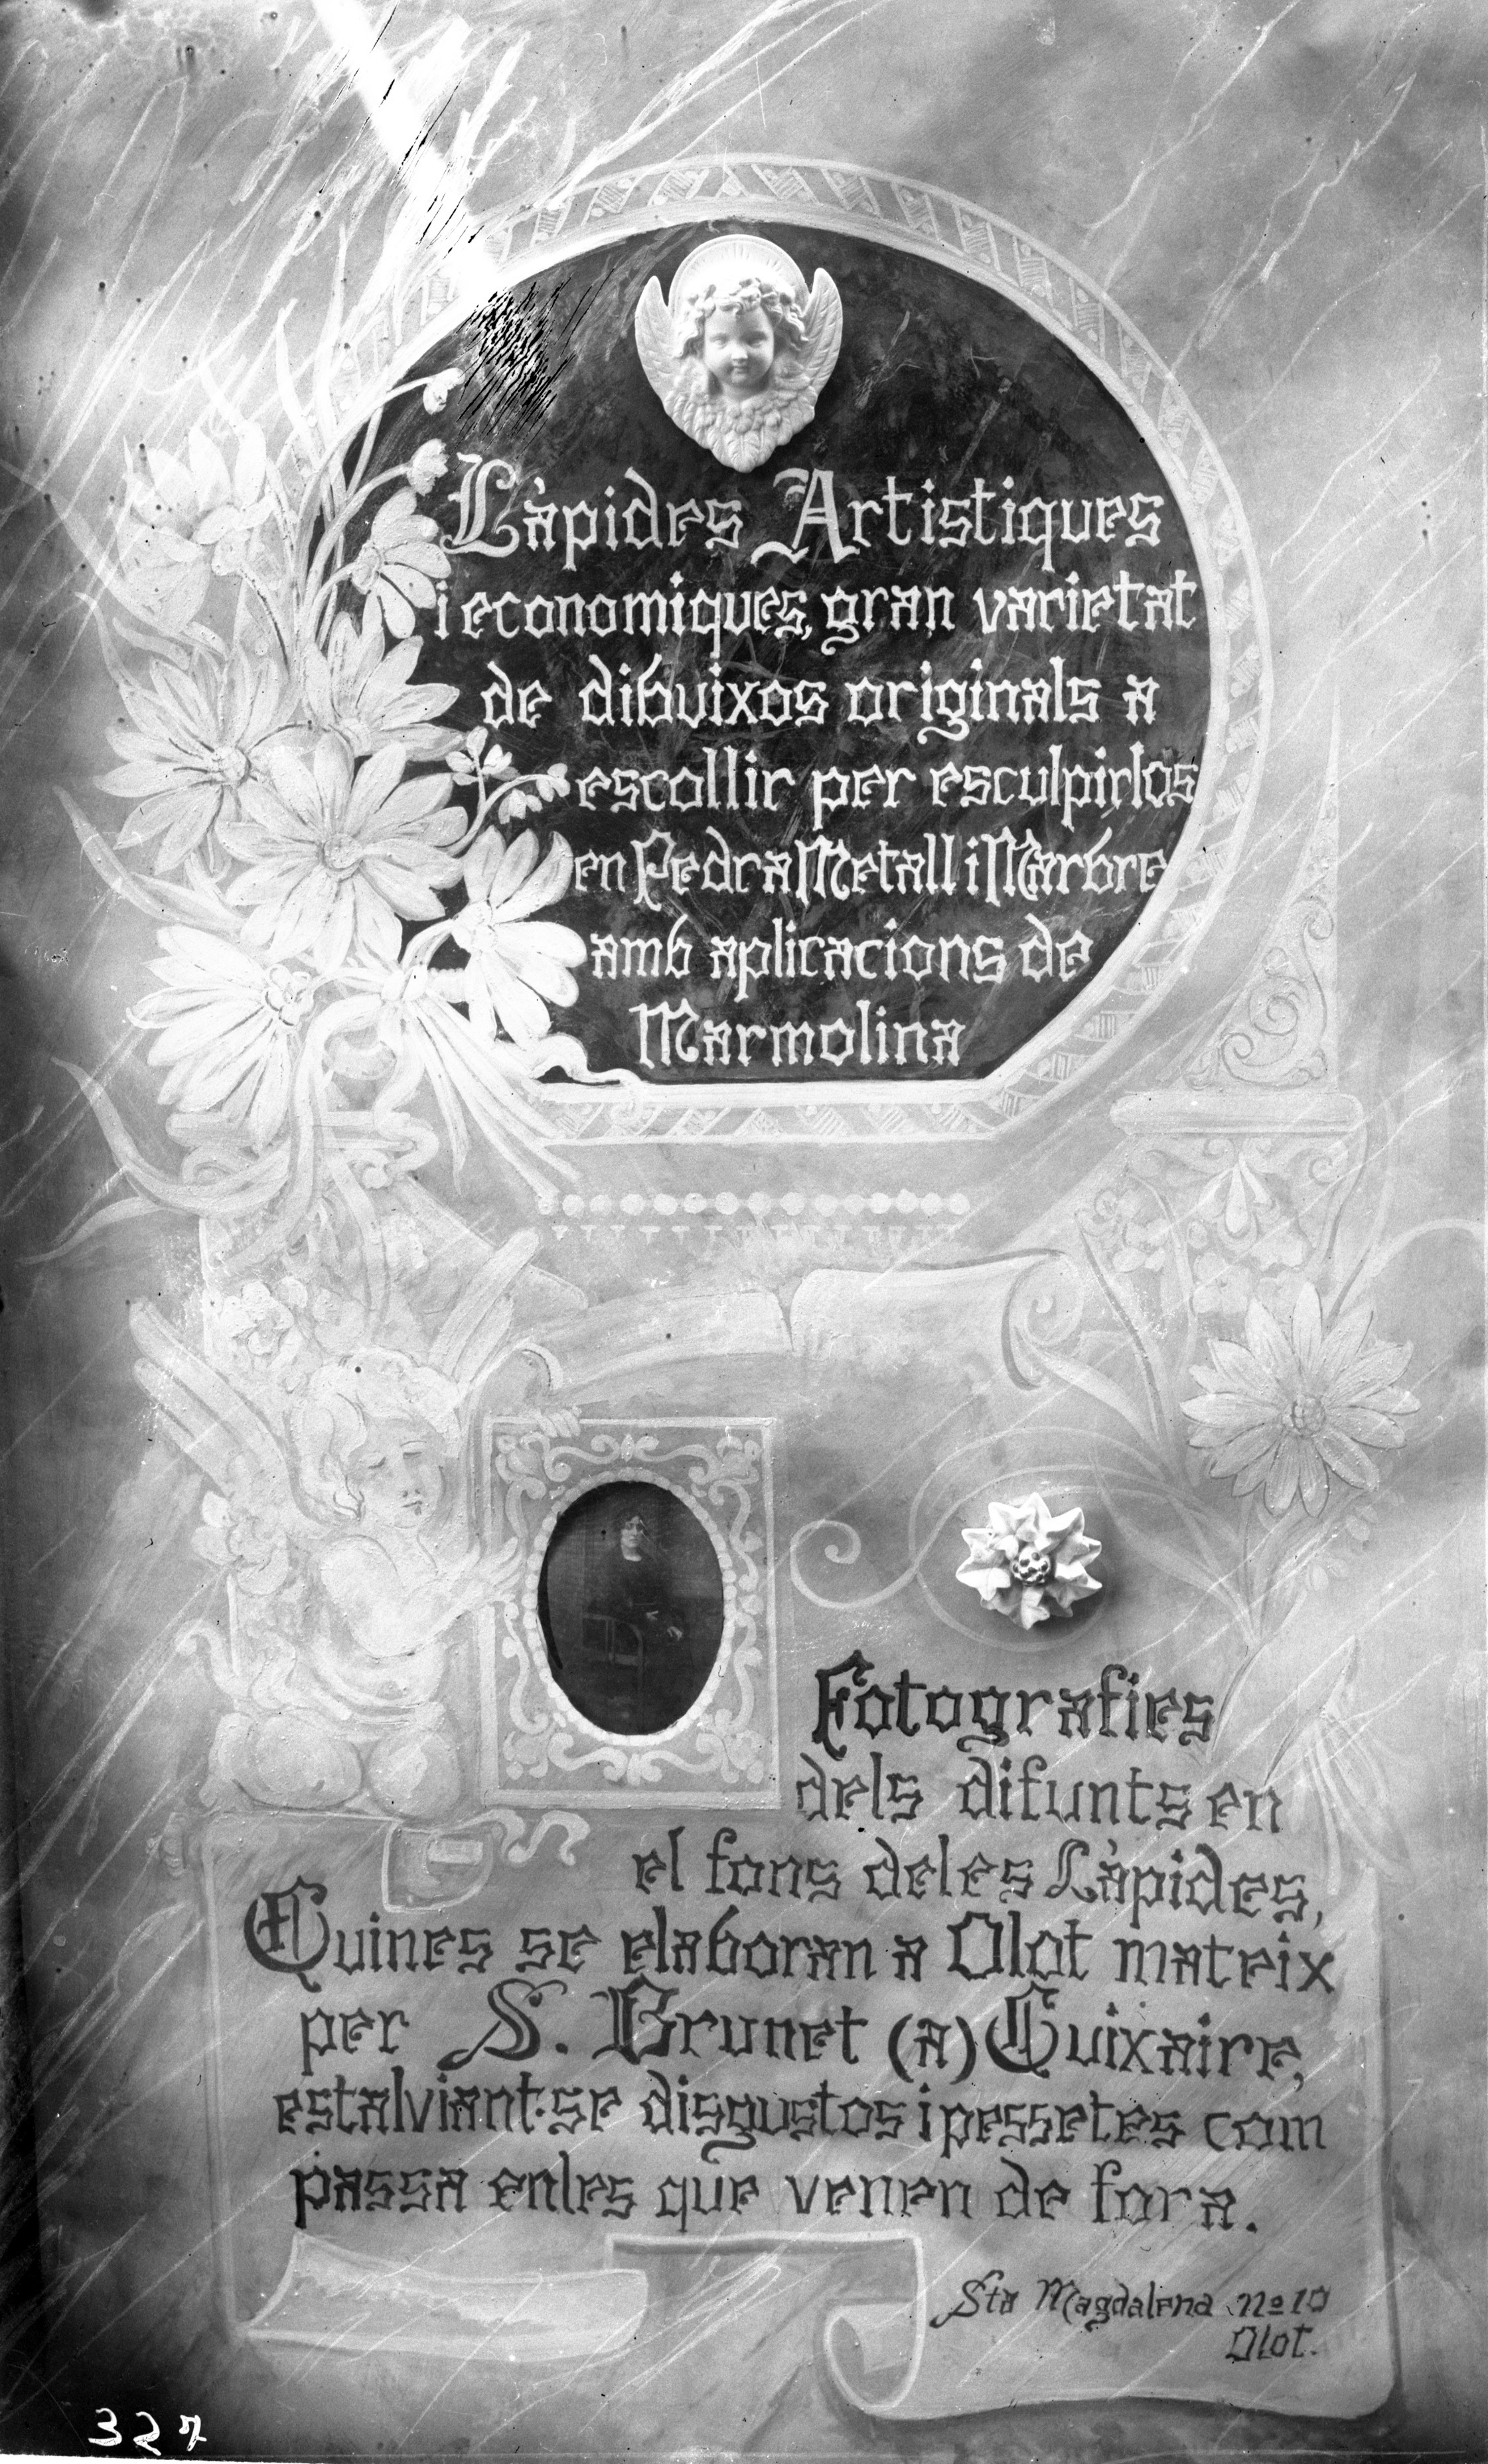 Làpides Artistiques
i economiques, gran varietat
de dibuixos originals a
escollir per esculpirlos
en Pedra Metall i Marbre
amb aplicacions de
Marmolina
Fotografies
dels difunts en
el fons de les Làpides,
Quines se elaboran a Olot mateix
per S. Brunet (a) Cuixaire,
estalviant-se disgustos i pessetes com
passa en les que venen de fora.
Sta Magdalena nº 10
Olot.
327